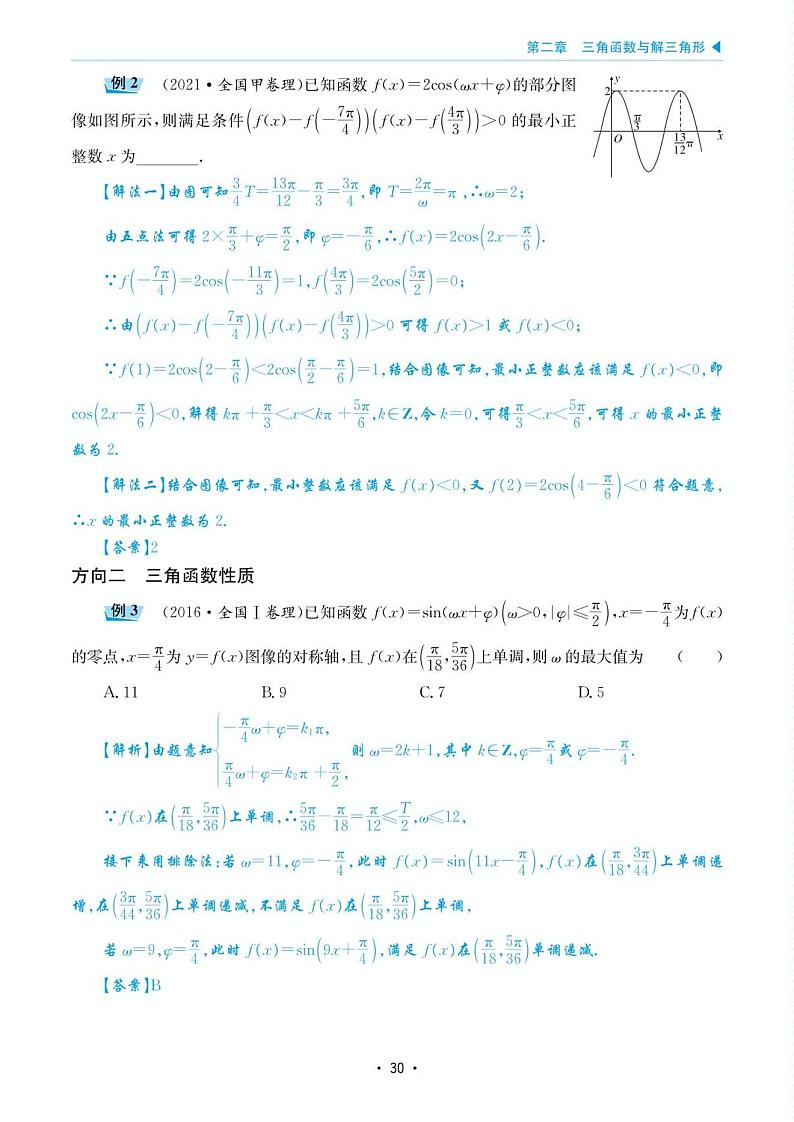 第二章 三角函数与解三角形 ◀
例 2 (2021·全国甲卷理)已知函数 f(x)=2cos(ωx+φ)的部分图
像如图所示,则满足条件(f(x)-f(-7π/4))(f(x)-f(4π/3))>0 的最小正
整数 x 为________.
y
2
O
π/3
13/12 π
x
【解法一】由图可知 3/4 T=13π/12-π/3=3π/4,即 T=2π/ω=π,∴ω=2;
由五点法可得 2×π/3+φ=π/2,即 φ=-π/6,∴f(x)=2cos(2x-π/6).
∵f(-7π/4)=2cos(-11π/3)=1,f(4π/3)=2cos(5π/2)=0;
∴由(f(x)-f(-7π/4))(f(x)-f(4π/3))>0 可得 f(x)>1 或 f(x)<0;
∵f(1)=2cos(2-π/6)<2cos(π/2-π/6)=1,结合图像可知,最小正整数应该满足 f(x)<0,即
cos(2x-π/6)<0,解得 kπ+π/3<x<kπ+5π/6,k∈Z,令 k=0,可得 π/3<x<5π/6,可得 x 的最小正整
数为 2.
【解法二】结合图像可知,最小整数应该满足 f(x)<0,又 f(2)=2cos(4-π/6)<0 符合题意,
∴x 的最小正整数为 2.
【答案】2
方向二 三角函数性质
例 3 (2016·全国Ⅰ卷理)已知函数 f(x)=sin(ωx+φ)(ω>0,|φ|≤π/2),x=-π/4 为f(x)
的零点,x=π/4 为 y=f(x)图像的对称轴,且 f(x)在(π/18,5π/36)上单调,则 ω 的最大值为 ( )
A. 11 B. 9 C. 7 D. 5
【解析】由题意知{-π/4 ω+φ=k₁π, π/4 ω+φ=k₂π+π/2, 则 ω=2k+1,其中 k∈Z,φ=π/4 或 φ=-π/4.
∵f(x)在(π/18,5π/36)上单调,∴5π/36-π/18=π/12≤T/2,ω≤12,
接下来用排除法:若 ω=11,φ=-π/4,此时 f(x)=sin(11x-π/4),f(x)在(π/18,3π/44)上单调递
增,在(3π/44,5π/36)上单调递减,不满足 f(x)在(π/18,5π/36)上单调,
若 ω=9,φ=π/4,此时 f(x)=sin(9x+π/4),满足 f(x)在(π/18,5π/36)单调递减.
【答案】B
· 30 ·